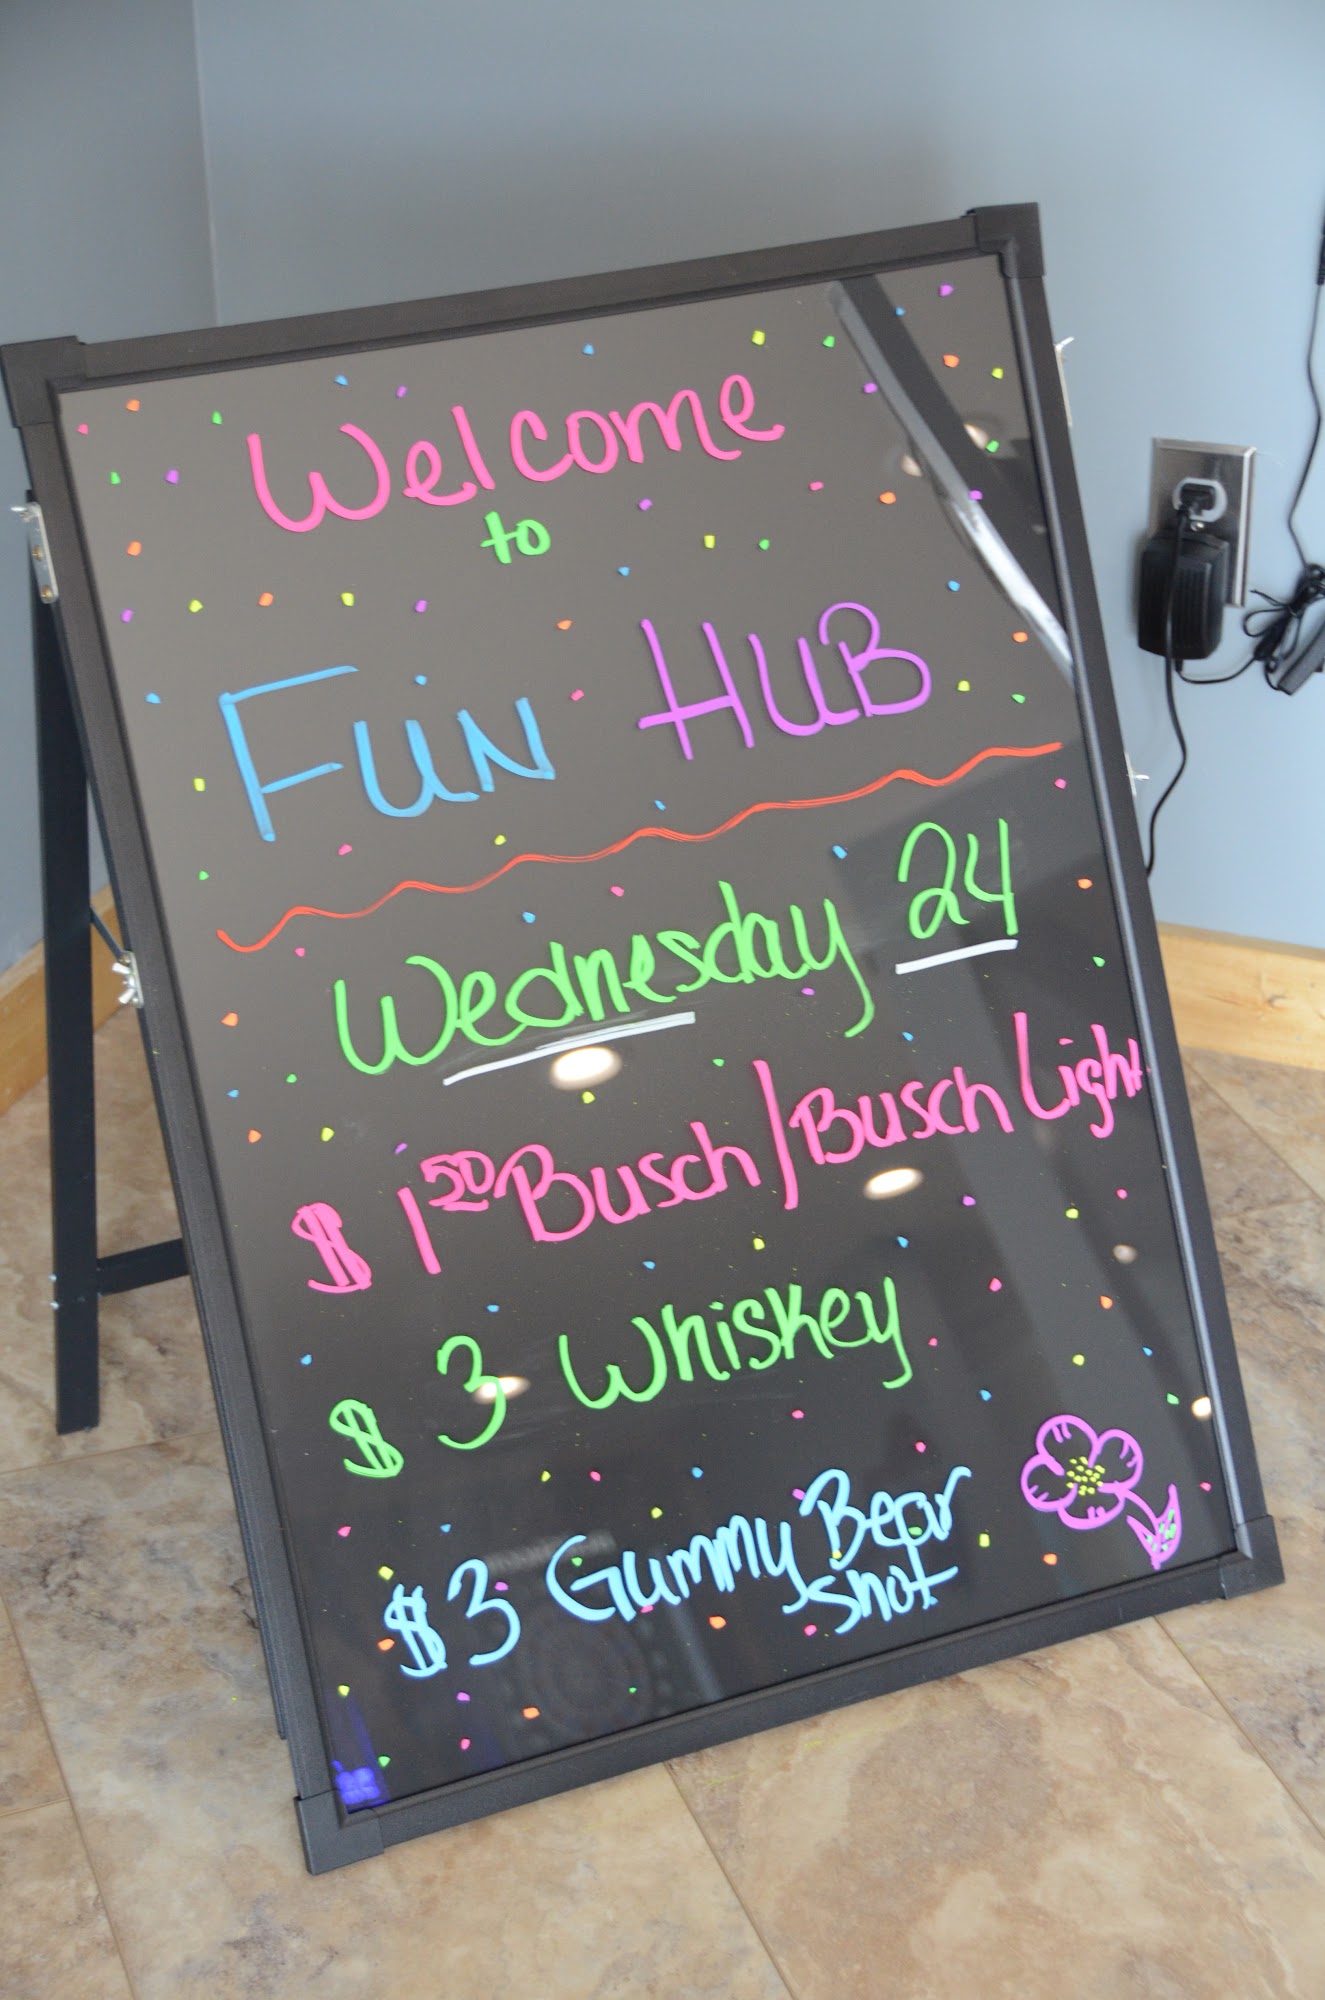 Welcome
to
Fun HUB
Wednesday 24
$1 50 Busch/Busch Light
$3 Whiskey
$3 Gummy Bear
shot